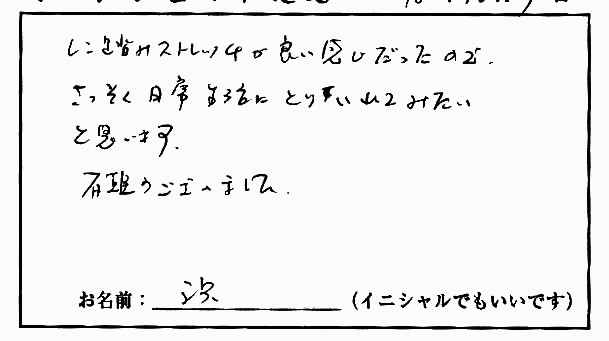 レこ踏みストレッチが良い感じだったので、
さっそく日常生活にとり入れてみたい
と思います。
有難うございました。
お名前: (イニシャルでもいいです)